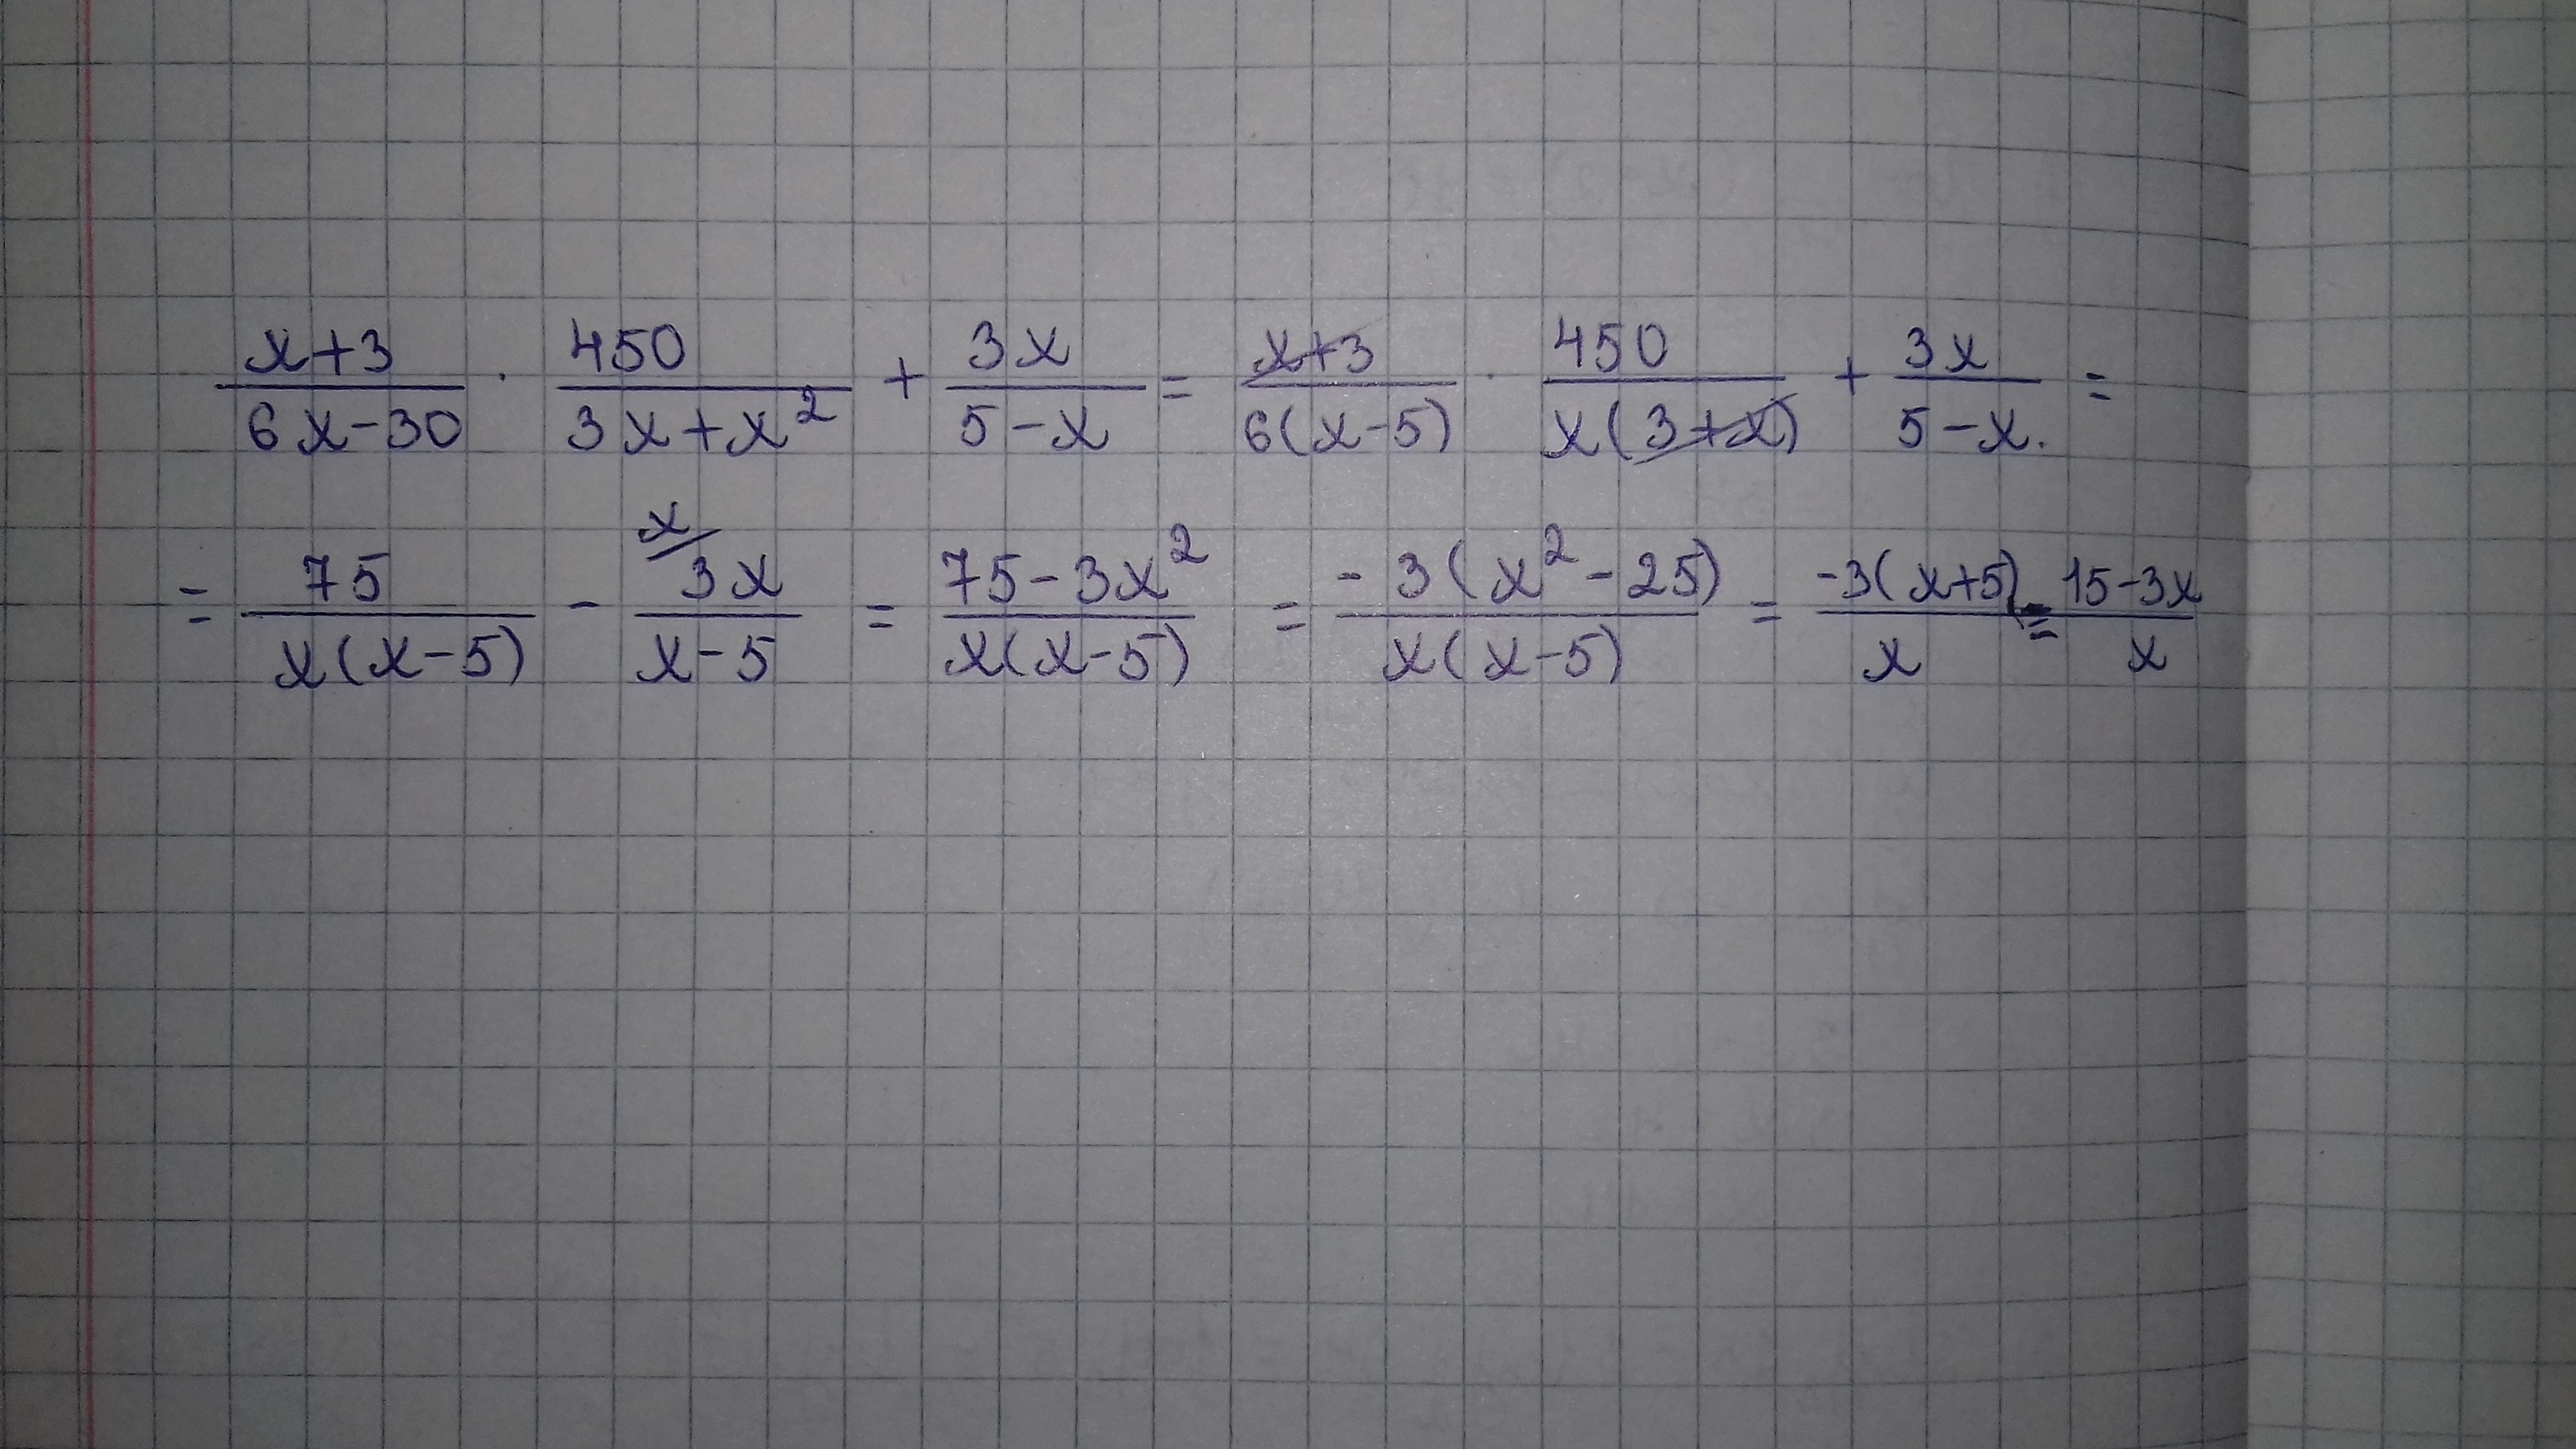 (x+3)/(6x-30) · 450/(3x+x²) + 3x/(5-x) = (x+3)/(6(x-5)) · 450/(x(3+x)) + 3x/(5-x) =
= 75/(x(x-5)) - x/ 3x/(x-5) = (75-3x²)/(x(x-5)) = -3(x²-25)/(x(x-5)) = -3(x+5)/x = (15-3x)/x